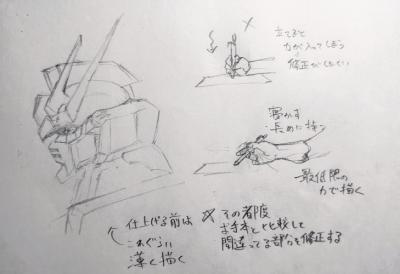 立てると
力が入ってしまう
修正がしにくい
寝かす
長めに持つ
最低限の
力で描く
仕上げる前は
これぐらい
薄く描く
※ その都度
お手本と比較して
間違ってる部分を修正する